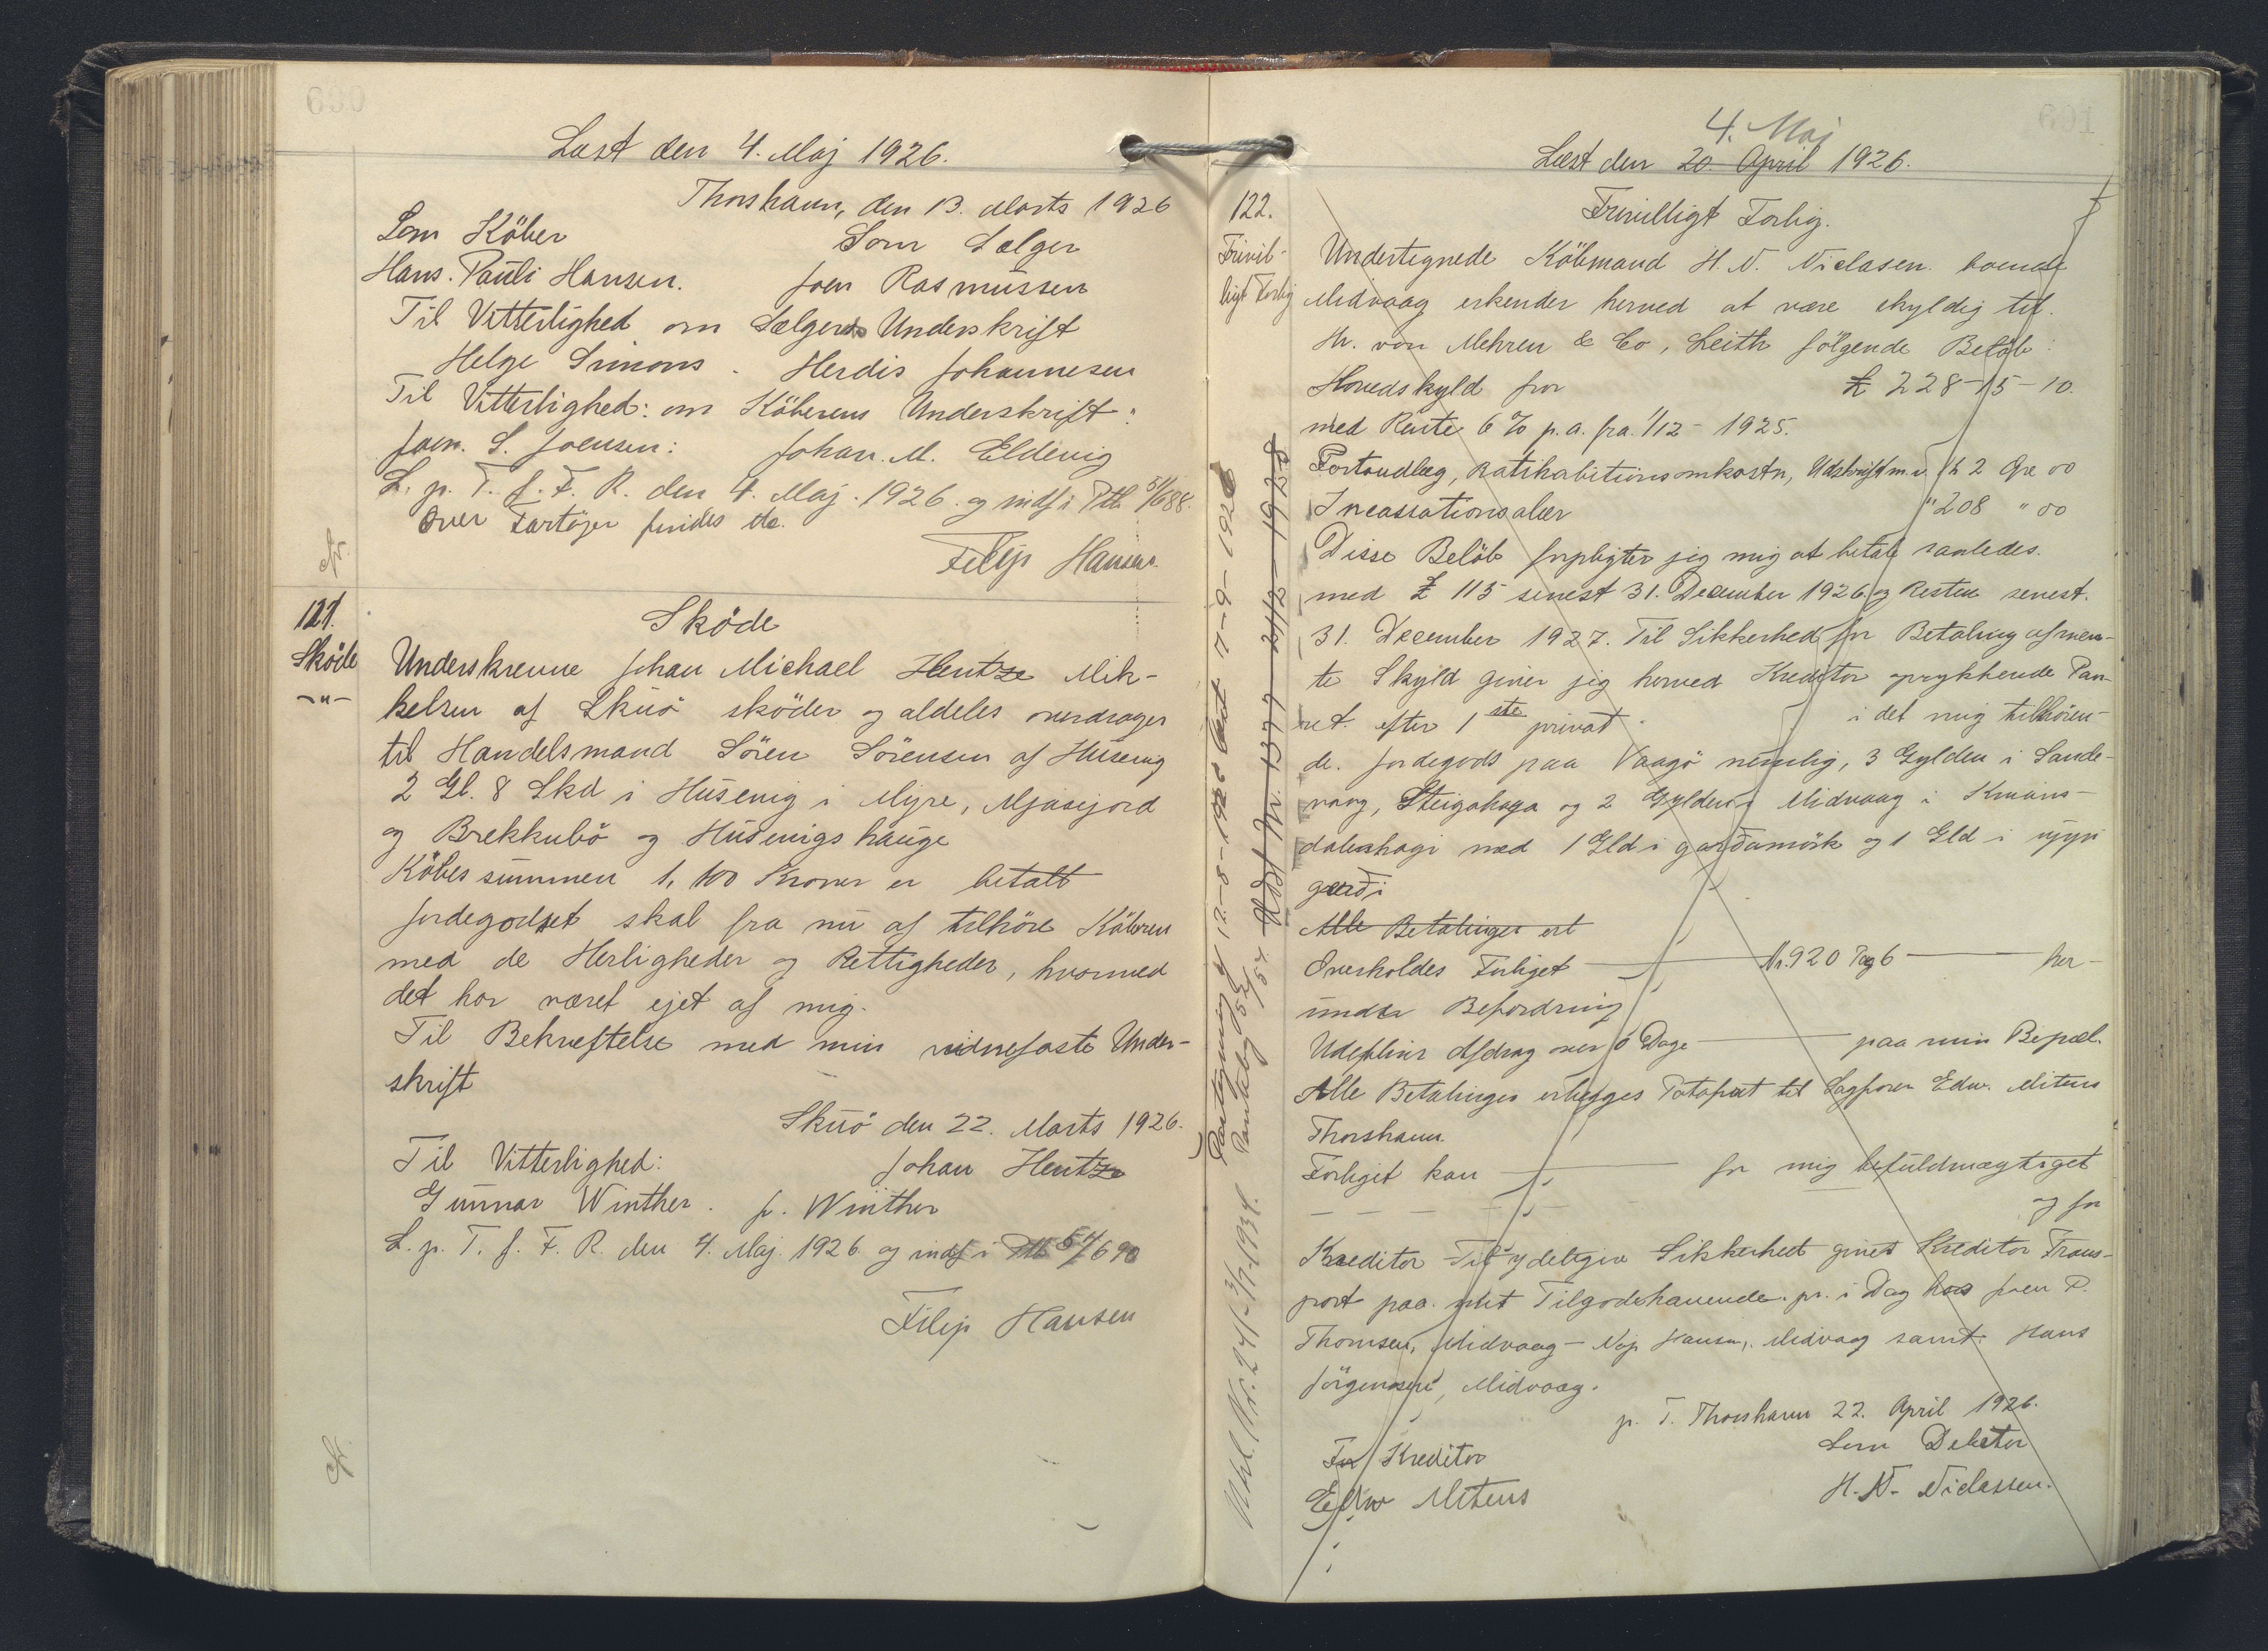 Læst den 4. Maj 1926.
Thorshavn, den 13. Marts 1926
Som Köber
Som Sælger
Hans. Pauli Hansen.
Joen Rasmussen
Til Vitterlighed om Sælgerens Underskrift
Helge Simons . Herdis Johannesen
Til Vitterlighed: om Köberens Underskrift:
Joen. S. Joensen: Johan. M. Eldevig
L. p. T. f. F. R. den 4. Maj. 1926. og indf i Ptb 51/688.
Over Fartöjer findes etc.
Filip Hansen.
121.
Sköde
-"-
Sköde
Underskrevne Johan Michael Hentze Mik-
kelsen af Skuö sköder og aldeles overdrager
til Handelsmand Sören Sörensen af Husevig
2 Gl. 8 Skd i Husevig i Myre, Mjasejord
og Brekkubö og Husevigs hauge
Köbesummen 1,100 Kroner er betalt
Jordegodset skal fra nu af tilhöre Köberen
med de Herligheder og Rettigheder, hvormed
det har været ejet af mig.
Til Bekræftelse med min vidnefaste Under-
skrift
Skuö den 22. Marts 1926.
Til Vitterlighed:
Johan Hentze
Gunnar Winther. J. Winther
L. p. T. f. F. R. den 4. Maj. 1926 og indf i Ptb 54/690
Filip Hansen
4. Maj
Læst den 20. April 1926.
122.
Frivil-
ligt Forlig
Frivilligt Forlig.
Undertegnede Köbmand H. N. Niclasen. boende
Midvaag erkender herved at være skyldig til.
Hr. von Mehren & Co, Leith fölgende Belöb:
Hovedskyld for £ 228-15-10.
med Rente 6 % p. a. fra 1/12 - 1925.
Fortaudlæg, Ratihabitionsomkostn, Udskrift m.v. Kr 2 Öre 00
Incassationsalær " 208 " 00
Disse Belöb forpligter jeg mig at betale saaledes.
med £ 115 senest 31. December 1926 og Resten senest.
31. December 1927. Til Sikkerhed for Betaling af næn-
te Skyld giver jeg herved Kreditor oprykkende Pan-
ret. efter 1ste privat. i det mig tilhören-
de. Jordegods paa Vaagö nemlig, 3 Gylden i Sande-
vaag, Steigahaga og 2 Gylden i Midvaag i Kvians-
dalshagi med 1 Gld i garðamörk og 1 Gld i
gerði
Alle Betalinger erl
Overholdes Forliget Nr. 920 Pag 6 her-
under Befordring
Udebliver Afdrag over 6 Dage paa min Bopæl.
Alle Betalinger erlægges Portofrit til Sagförer Edw. Mitens
Thorshavn.
Forliget kan for mig befuldmægtiget
og for
Kreditor Til ydeligere Sikkerhed gives Kreditor Trans-
port paa. mit Tilgodehavende. pr. i Dag hos Joen P.
Thomsen, Midvaag - Hansen, Midvaag samt. Hans
Jörgensen, Midvaag.
p. T. Thorshavn 22. April 1926.
For Kreditor
Som Debitor
Edw Mitens
H. N. Niclassen.